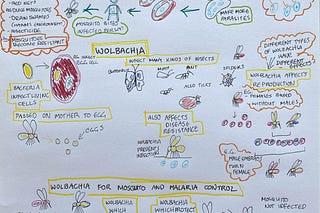 - BED NET
REDUCE MOSQUITOS
- DRAIN SWAMPS
(HARMS ENVIRONMENT)
- INSECTICIDE
MOSQUITOES
BECOME RESISTANT
MOSQUITO BITES
INFECTED PERSON
MAKE MORE
PARASITES
WOLBACHIA
INFECT MANY KINDS OF INSECTS
BUTTERFLY
ANT
SPIDERS
ALSO TICKS
DIFFERENT TYPES
OF WOLBACHIA
HAVE
DIFFERENT
EFFECTS
WOLBACHIA AFFECTS
REPRODUCTION
E.G. FEMALES BREED
WITHOUT MALES
BACTERIA
INFECT LIVING
CELLS
PASSED ON MOTHER TO EGG
EGGS
ALSO AFFECTS
DISEASE
RESISTANCE
WOLBACHIA
PREVENT
INFECTION
E.G.
MALE EMBRYOS
TURN
FEMALE
WOLBACHIA FOR MOSQUITO AND MALARIA CONTROL
WOLBACHIA
WHICH
WOLBACHIA
WHICH PROTECT
MOSQUITO
NOT INFECTED